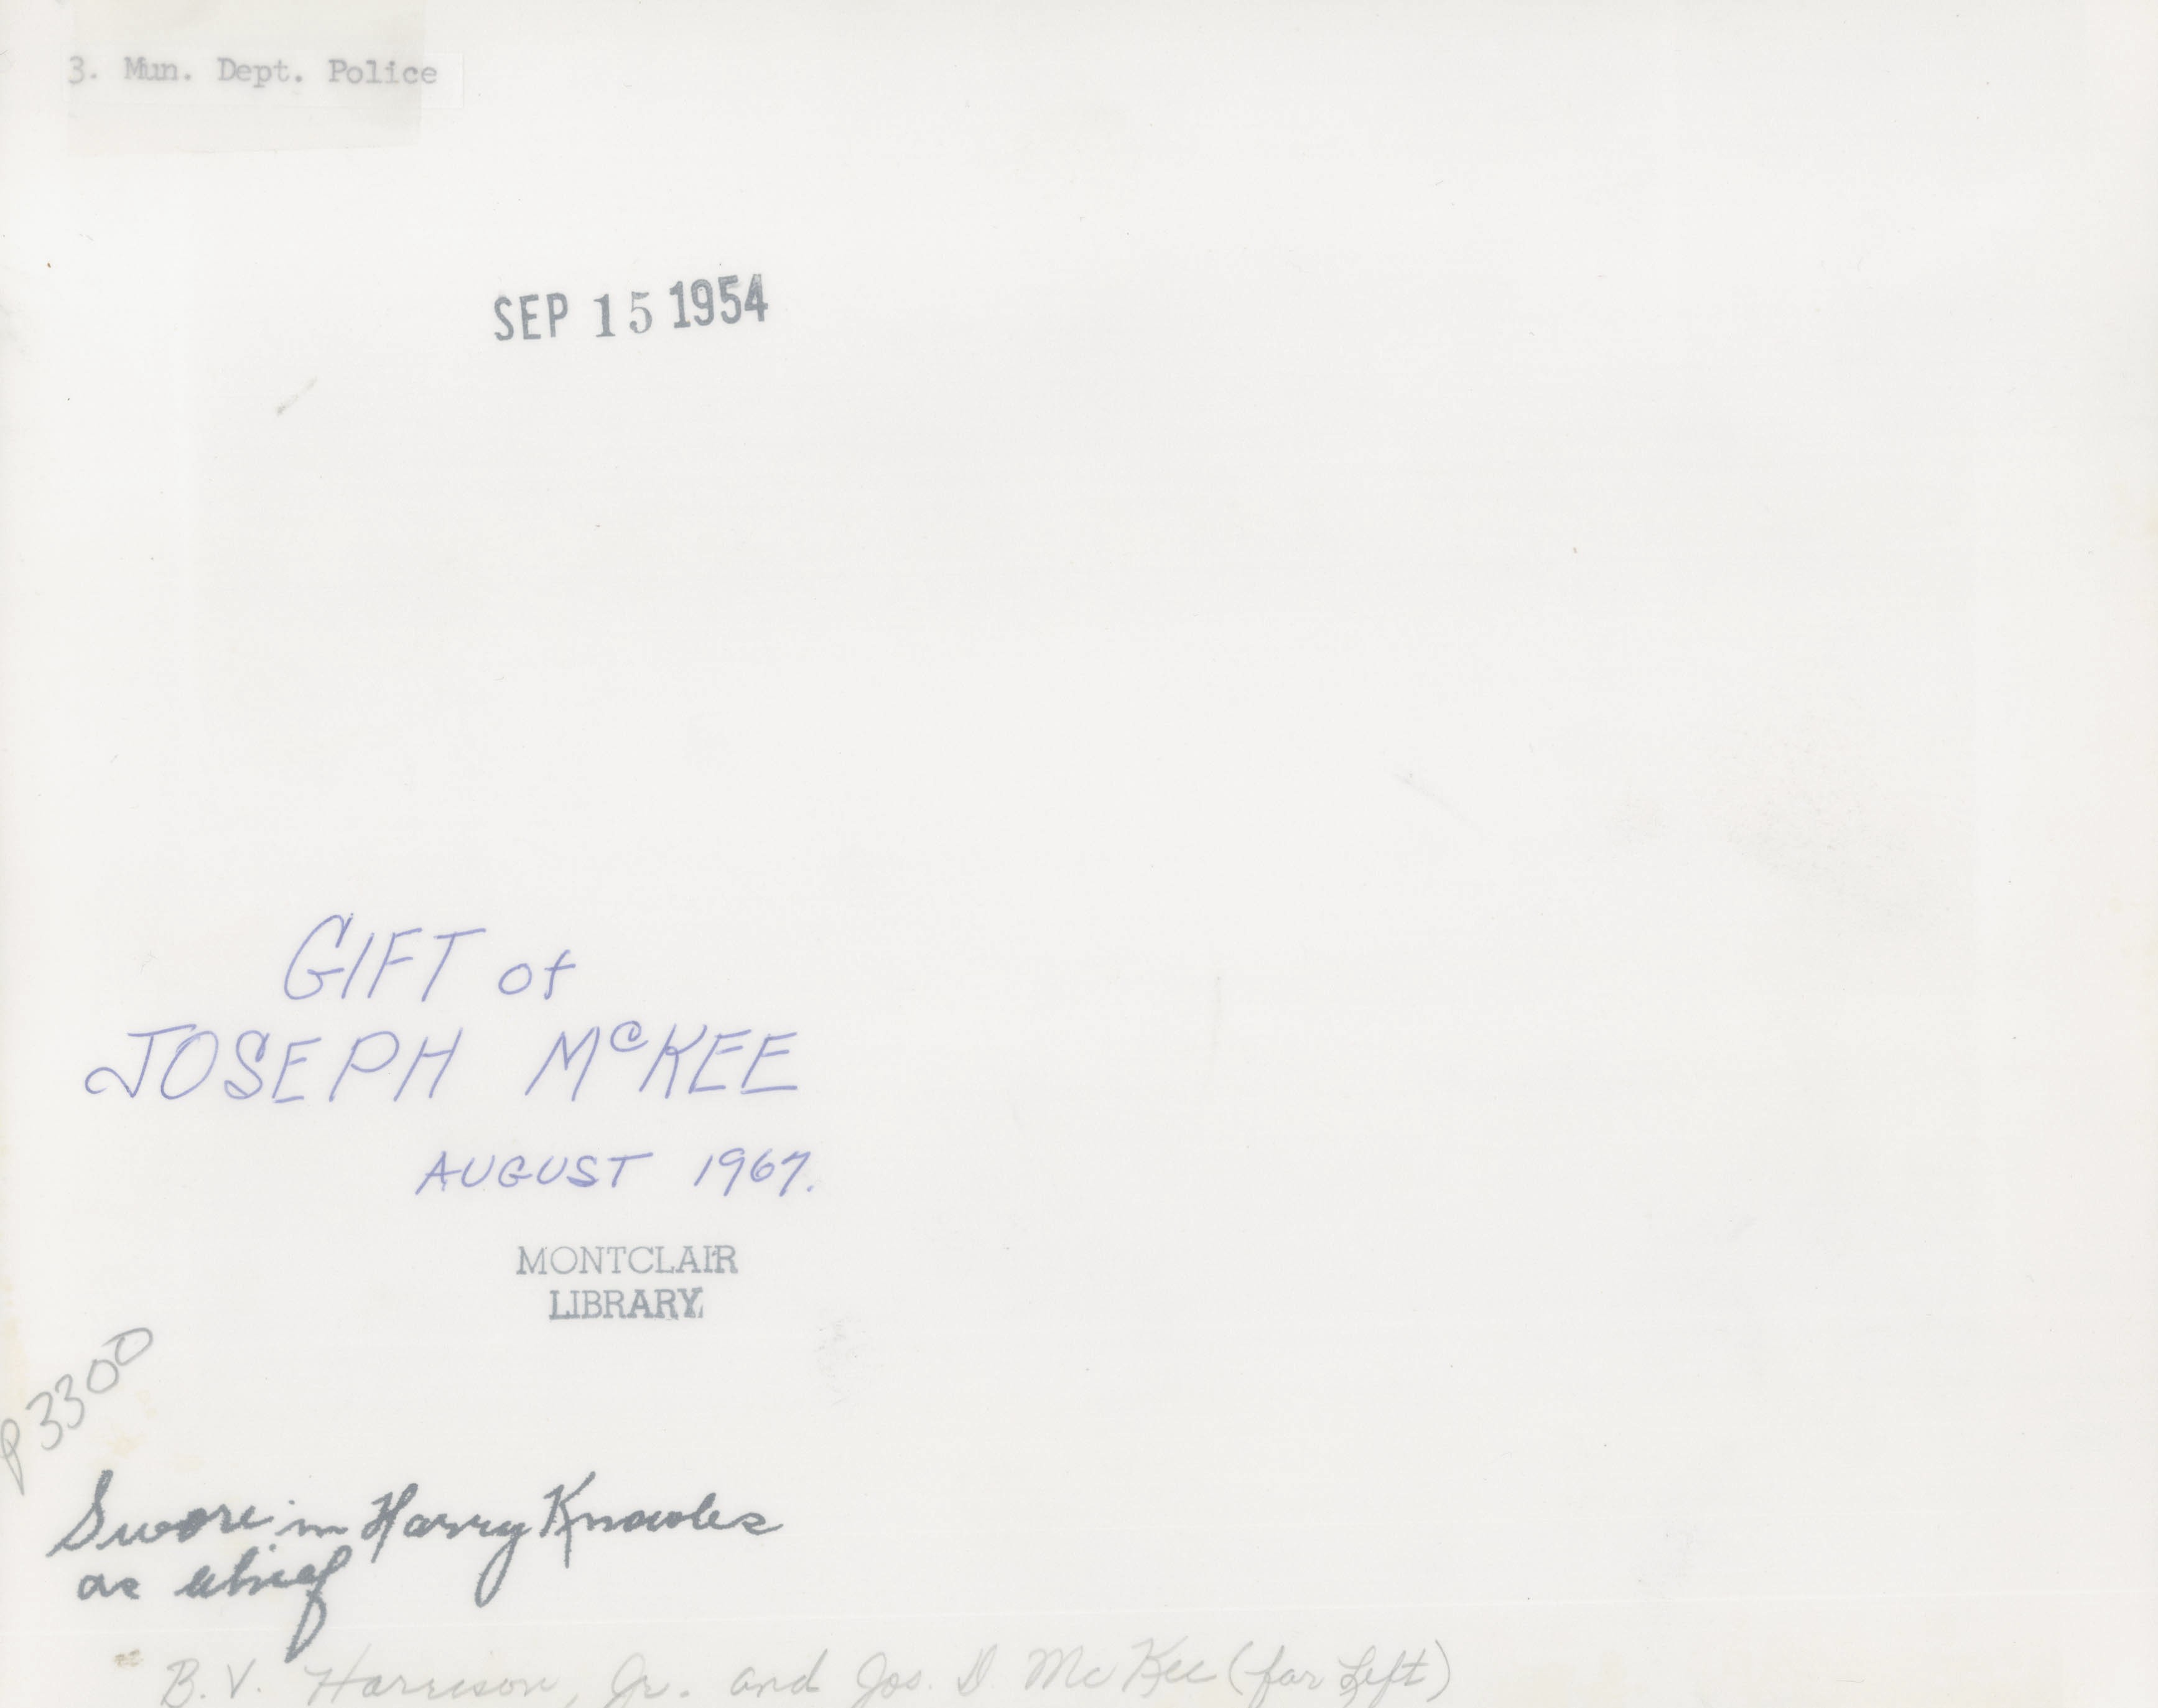 3. Mun. Dept. Police
SEP 15 1954
GIFT of
JOSEPH McKEE
AUGUST 1967.
MONTCLAIR
LIBRARY
P3300
Swore in Harry Knowles
as chief
B.V. Harrison, Jr. and Jos. D. McKee (far left)